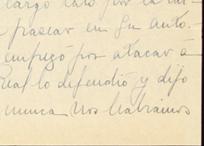 largo rato por la
pasear en su auto.
empezó por atacar á
cual lo defendió y dijo
nunca nos habíamos